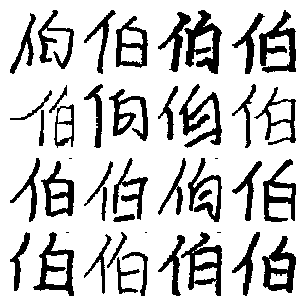 伯伯伯伯
伯伯伯伯
伯伯伯伯
伯伯伯伯